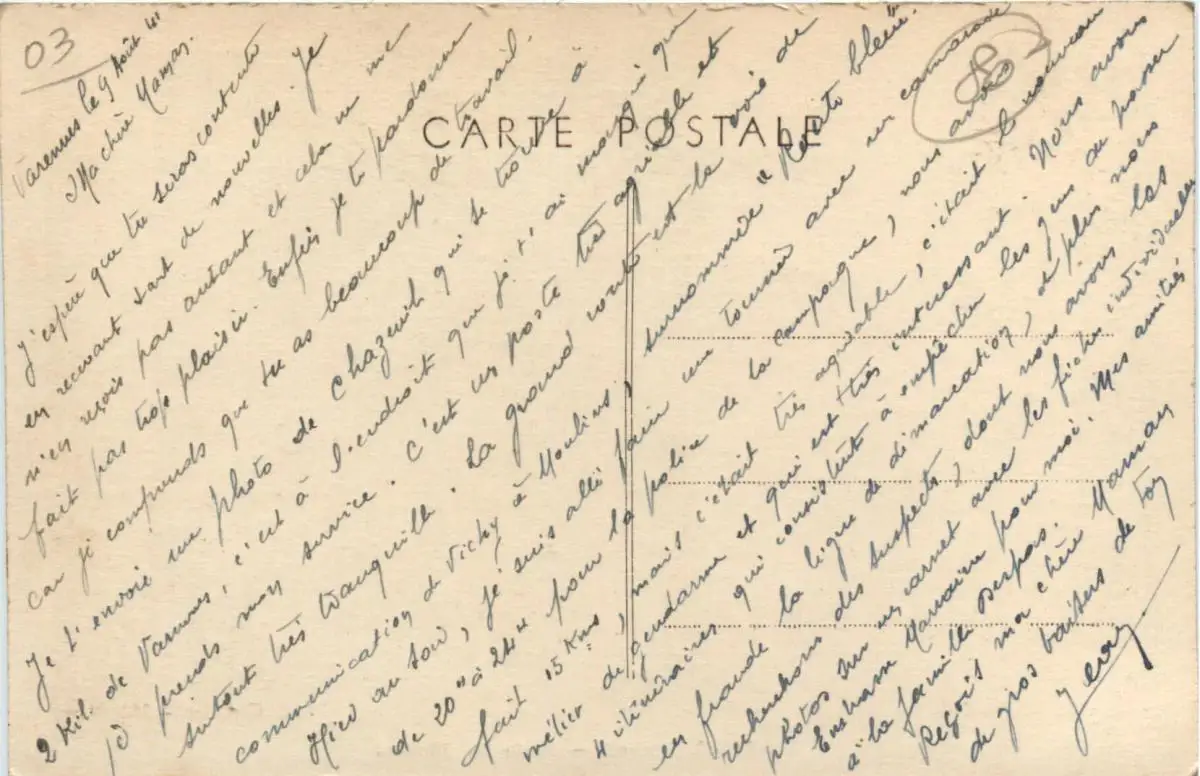 03
CARTE POSTALE
Varennes le 9 Août 41
Ma chère Maman.
J'espère que tu seras contente
en recevant tant de nouvelles. Je
n'en reçois pas autant et cela ne me
fait pas trop plaisir. Enfin je te pardonne
car je comprends que tu as beaucoup de travail.
Je t'envoie une photo de Chazeuil qui se trouve à
2 Kil. de Varennes, c'est à l'endroit que je t'ai marqué que
je prends mon service. C'est un poste très agréable et
surtout très tranquille. La grand route est la voie de
communication de Vichy à Moulins, surnommée "Route bleue".
Hier au soir, je suis allé faire une tournée avec un camarade
de 20" à 24" pour la police de la campagne, nous avons
fait 15 Kms, mais c'était très agréable, c'était le nouveau
métier de gendarme et qui est très intéressant. Nous avons
4 itinéraires qui consistent à empêcher les gens de passer
en fraude la ligne de démarcation, de plus nous
recherchons des suspects, dont nous avons les
photos sur un carnet avec les fiches individuelles
Embrasse Marraine pour moi. Mes amitiés
à la famille Despas.
Reçois ma chère Maman
de gros baisers de ton